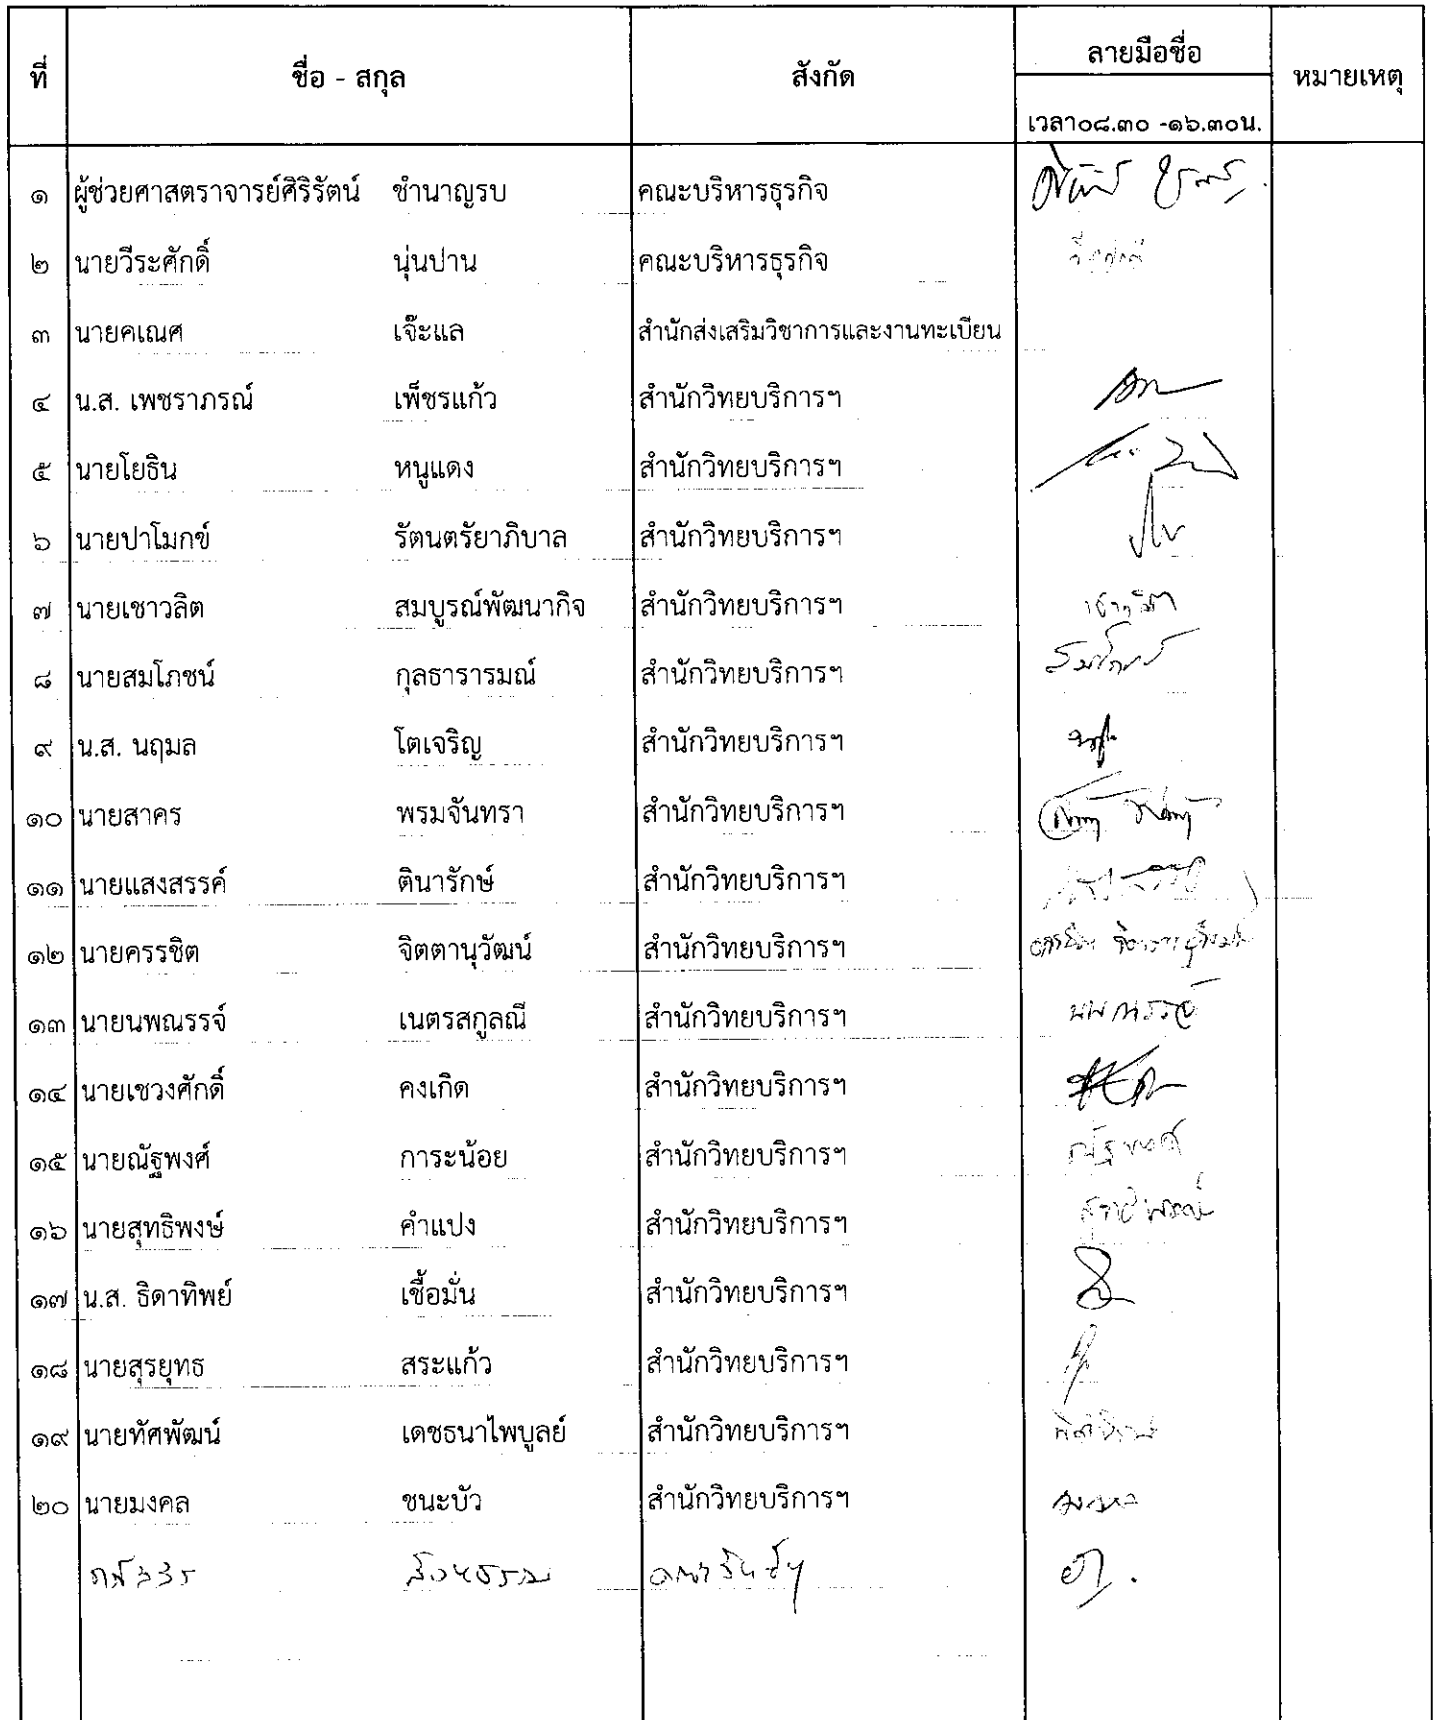 ที่ ชื่อ - สกุล สังกัด ลายมือชื่อ หมายเหตุ
เวลา๐๘.๓๐ -๑๖.๓๐น.
๑ ผู้ช่วยศาสตราจารย์ศิริรัตน์ ชำนาญรบ คณะบริหารธุรกิจ
๒ นายวีระศักดิ์ นุ่นปาน คณะบริหารธุรกิจ วีระศักดิ์
๓ นายคเณศ เจ๊ะแล สำนักส่งเสริมวิชาการและงานทะเบียน
๔ น.ส. เพชราภรณ์ เพ็ชรแก้ว สำนักวิทยบริการฯ
๕ นายโยธิน หนูแดง สำนักวิทยบริการฯ
๖ นายปาโมกข์ รัตนตรัยาภิบาล สำนักวิทยบริการฯ
๗ นายเชาวลิต สมบูรณ์พัฒนากิจ สำนักวิทยบริการฯ เชาวลิต
๘ นายสมโภชน์ กุลธารารมณ์ สำนักวิทยบริการฯ สมโภชน์
๙ น.ส. นฤมล โตเจริญ สำนักวิทยบริการฯ
๑๐ นายสาคร พรมจันทรา สำนักวิทยบริการฯ
๑๑ นายแสงสรรค์ ตินารักษ์ สำนักวิทยบริการฯ
๑๒ นายครรชิต จิตตานุวัฒน์ สำนักวิทยบริการฯ ครรชิต จิตตานุวัฒน์
๑๓ นายนพณรรจ์ เนตรสกูลณี สำนักวิทยบริการฯ นพณรรจ์
๑๔ นายเชวงศักดิ์ คงเกิด สำนักวิทยบริการฯ
๑๕ นายณัฐพงศ์ การะน้อย สำนักวิทยบริการฯ ณัฐพงศ์
๑๖ นายสุทธิพงษ์ คำแปง สำนักวิทยบริการฯ สุทธิพงษ์
๑๗ น.ส. ธิดาทิพย์ เชื้อมั่น สำนักวิทยบริการฯ
๑๘ นายสุรยุทธ สระแก้ว สำนักวิทยบริการฯ
๑๙ นายทัศพัฒน์ เดชธนาไพบูลย์ สำนักวิทยบริการฯ ทัศพัฒน์
๒๐ นายมงคล ชนะบัว สำนักวิทยบริการฯ มงคล